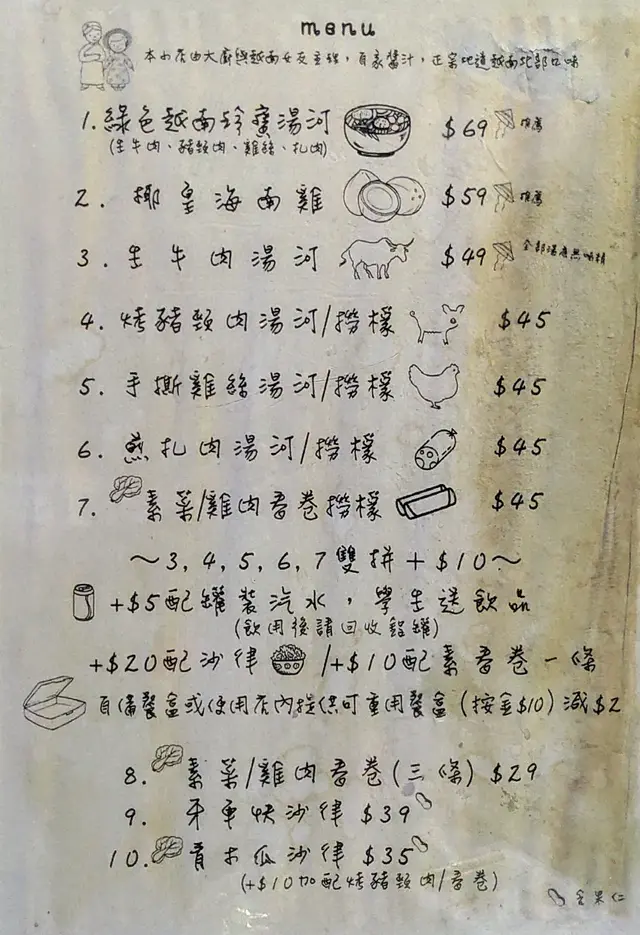 menu
本小店由大廚與越南女友主理，自家醬汁，正宗地道越南北部口味
1. 綠色越南珍寶湯河 $69 推薦
(生牛肉、豬頸肉、雞絲、扎肉)
2. 椰皇海南雞 $59 推薦
3. 生牛肉湯河 $49 全部湯底無味精
4. 烤豬頸肉湯河/撈檬 $45
5. 手撕雞絲湯河/撈檬 $45
6. 煎扎肉湯河/撈檬 $45
7. 素菜/雞肉春卷撈檬 $45
～3, 4, 5, 6, 7 雙拼 + $10～
+$5配罐裝汽水，學生送飲品
(飲用後請回收鋁罐)
+$20配沙律 /+$10配素春卷一條
自備餐盒或使用店內提供可重用餐盒 (按金$10) 減$2
8. 素菜/雞肉春卷(三條) $29
9. 牙車快沙律 $39
10. 青木瓜沙律 $35
(+$10加配烤豬頸肉/春卷)
含果仁